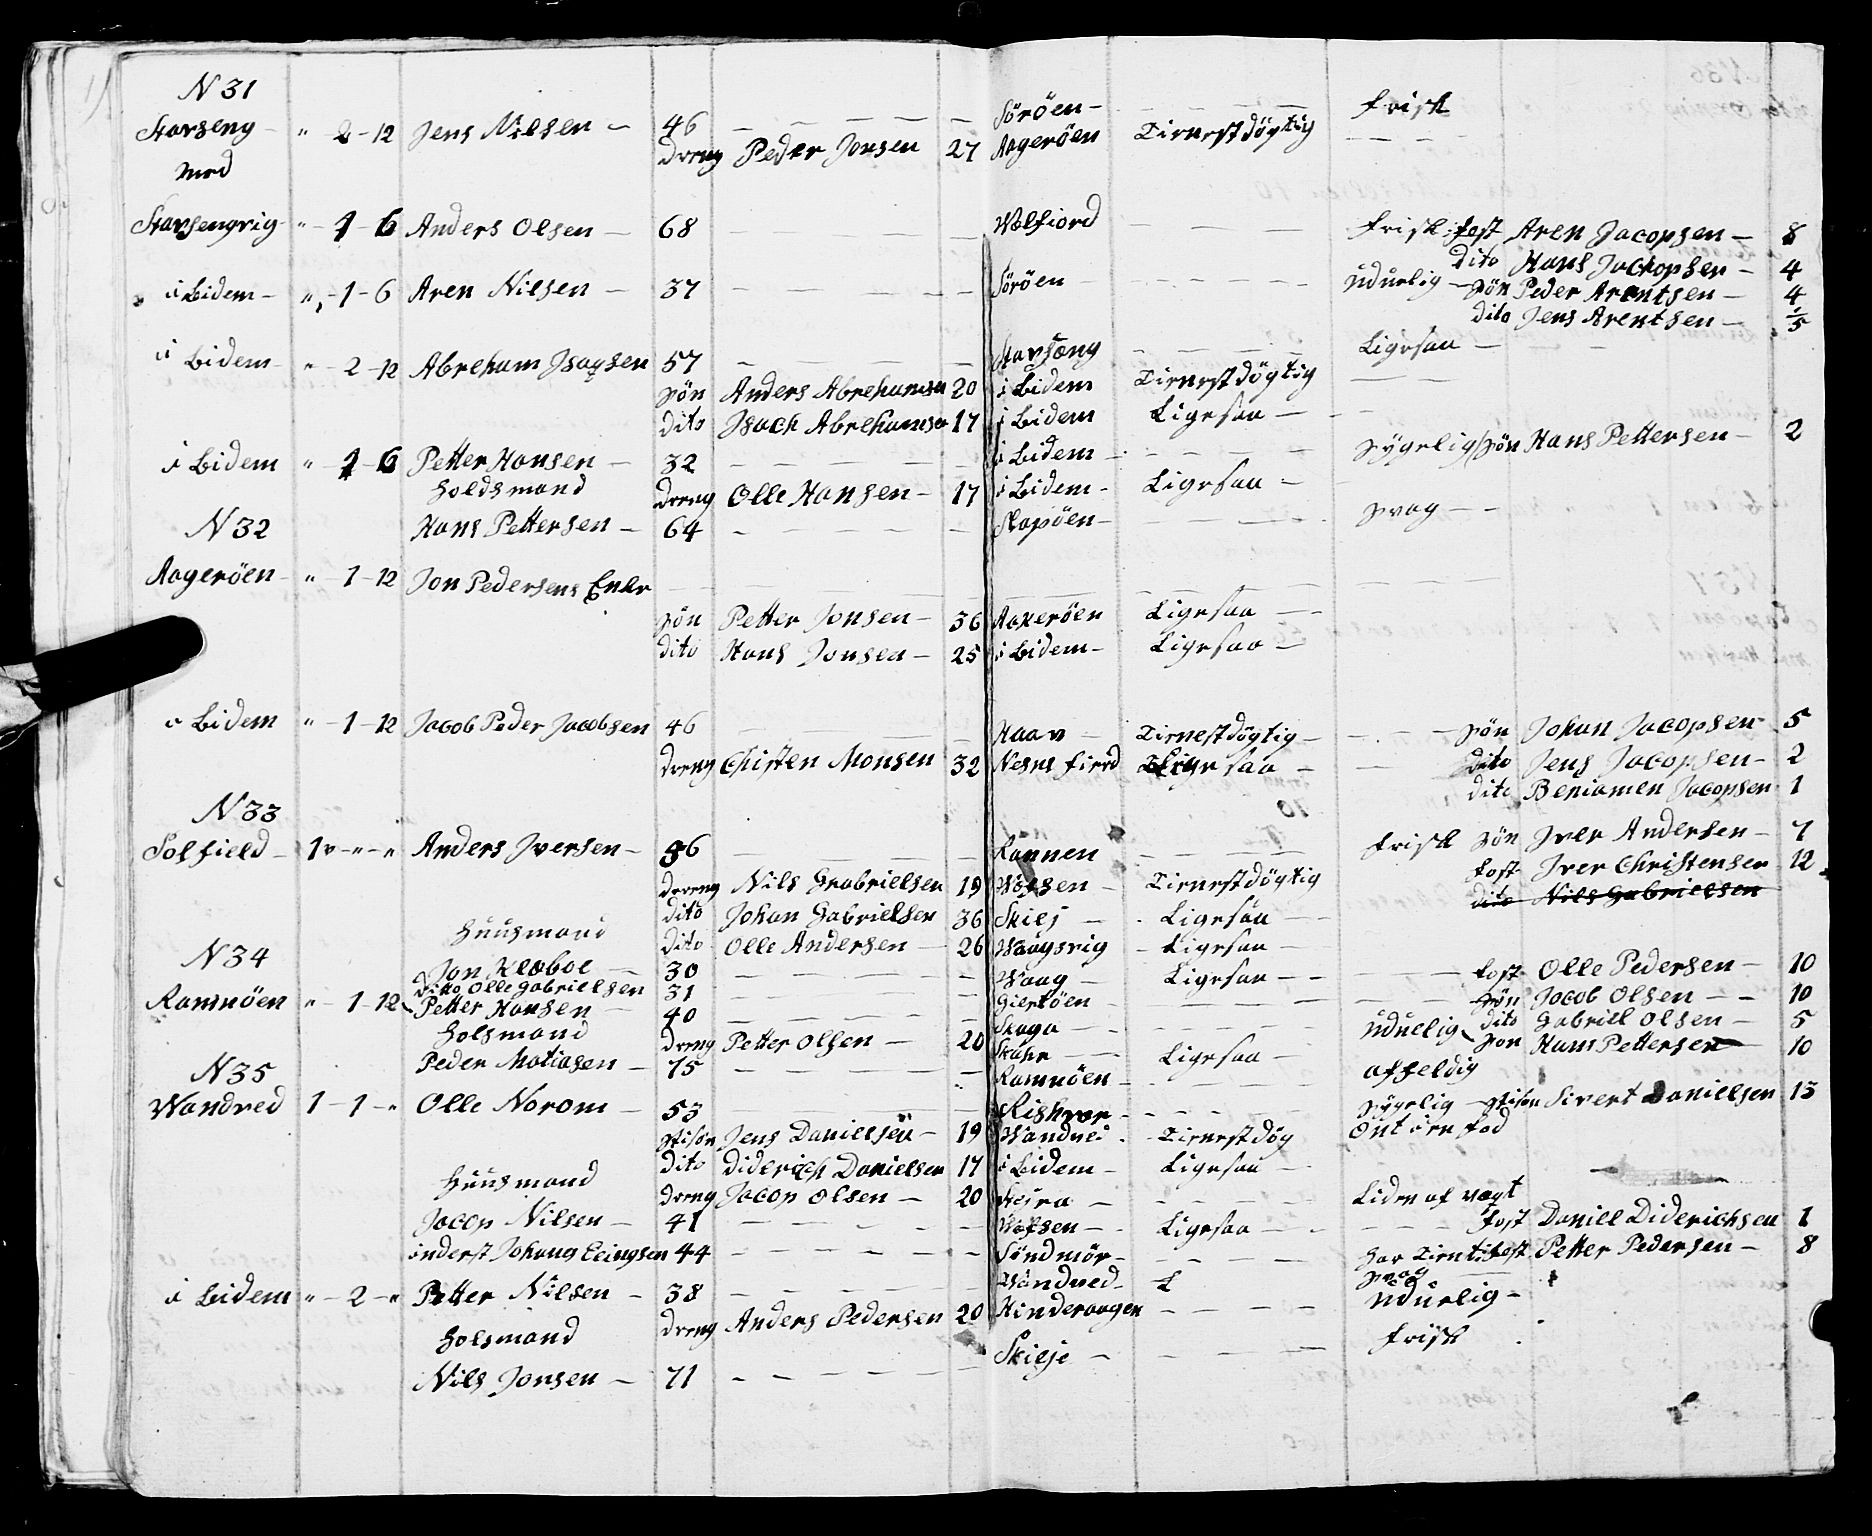 N 31
Storseng - " 2 - 12 Jens Nilsen - 46 Söröen - frisk
med Dreng Peder Jonsen 27 Aageröen Tienestdögtig
Storsengvig " - 1 - 6 Anders Olsen - 68 Velfiord frisk fost Aren Jacopsen - 8
dito Hans Jackopsen - 4
ibidem - " - 1 - 6 Aren Nilsen - 37 Söröen uduelig - sön Peder Arentsen - 4
dito Jens Arentsen -
ibidem - " - 2 - 12 Abreham Isaqsen 57 Storsæng Ligesaa -
sön Anders Abrehamsen 20 ibidem Tienestdögtig
dito Isach Abrehamsen 17 ibidem Ligesaa -
ibidem " - 1 - 6 Petter Hansen - 32 ibidem - sygelig sön Hans Pettersen - 2
Holdsmand Dreng Olle Hansen - 17 ibidem - Ligesaa -
N 32 Hans Pettersen - 64 Stopöen - svag -
Aageröen - " - 1 - 12 Jon Pedersens Enke
sön Petter Jonsen - 36 Aakeröen Ligesaa -
dito Hans Jonsen - 25 ibidem - Ligesaa -
ibidem " - 1 - 12 Jacob Peder Jacobsen 46 Haav - Tienestdögtig - sön Johan Jacopsen - 5
Dreng Christen Monsen 32 Nesne fierd Ligesaa - dito Jens Jacopsen - 2
dito Beniamen Jacopsen 1
N 33
Solfield - 1 v - " - " Anders Iversen - 56 Ramnen frisk sön Iver Andersen - 7
Dreng Nils Grabrielsen 19 Vefsen - Tienestdögtig fost Iver Christensen 12
dito Johan Gabrielsen 36 Skiej - Ligesaa - dito Nils Gabrielsen
Huusmand dito Olle Andersen - 26 Vaagsvig - Ligesaa -
N 34 Jon Kleboe 30 Vaag - Ligesaa - fost Olle Pedersen - 10
dito Olle Gabrielsen 31 Gieröen - sön Jacob Olsen - 10
Ramnöen " - 1 - 12 Petter Hansen - 40 Skaga - uduelig dito Gabriel Olsen - 5
Holsmand Dreng Petter Olsen - 20 sön Hans Pettersen 10
N 35 Peder Matiasen - 75 Ramnöen - Ligesaa - affeldig
Vandved 1 - 1 - " Olle Norom - 53 Rishver - sygelig - stisön Sivert Danielsen 13
stisön Jens Danielsen - 19 Vandved - Tienestdög Ont i en fod
dito Diderich Danielsen 17 ibidem - Ligesaa -
Huusmand Dreng Jacop Olsen - 20 Liden af vext
Jacop Nilsen - 41 Vefsen - Ligesaa - fost Daniel Diderichsen 1
inderst Johans Ellingsen 44 Sondmör - har Tient fost Petter Pedersen - 8
svag
ibidem " - 2 - " Petter Nilsen - 38 Vandved uduelig -
Dreng Anders Pedersen 20 Hinderaagen
Holsmand frisk
Nils Jonsen - 71 Skilje -